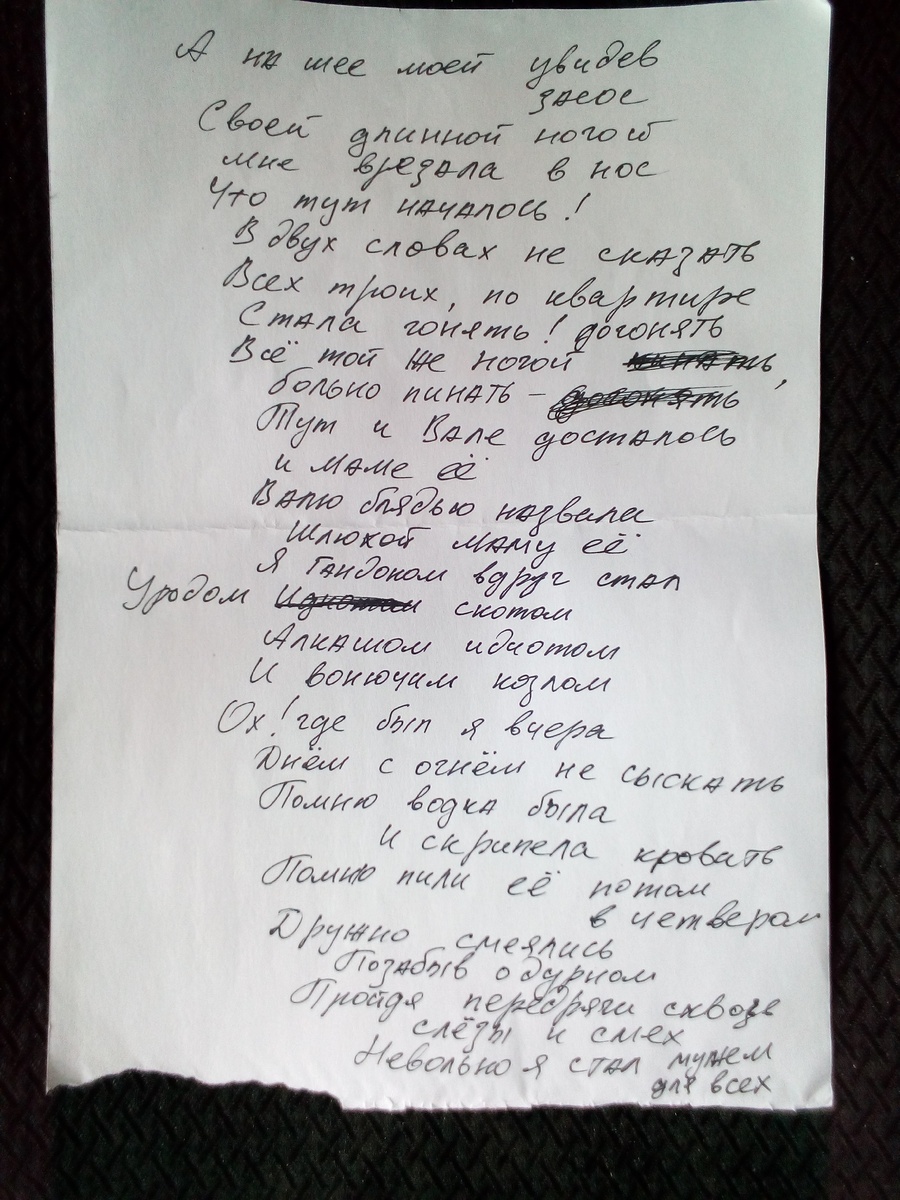 А на шее моей увидев
засос
Своей длинной ногой
мне врезала в нос
Что тут началось!
В двух словах не сказать
Всех троих, по квартире
Стала гонять! догонять
Всё той же ногой
больно пинать –
Тут и Вале досталось
и маме её
Валю блядью назвала
Шлюхой маму её
Я Гандоном вдруг стал
Уродом Идиотом скотом
Алкашом идиотом
И вонючим козлом
Ох! где был я вчера
Днём с огнём не сыскать
Помню водка была
И скрипела кровать
Помню пили её потом
в четвером
Дружно смеялись
Позабыв о дурном
Пройдя передряги сквозь
слёзы и смех
Невольно я стал мужем
для всех